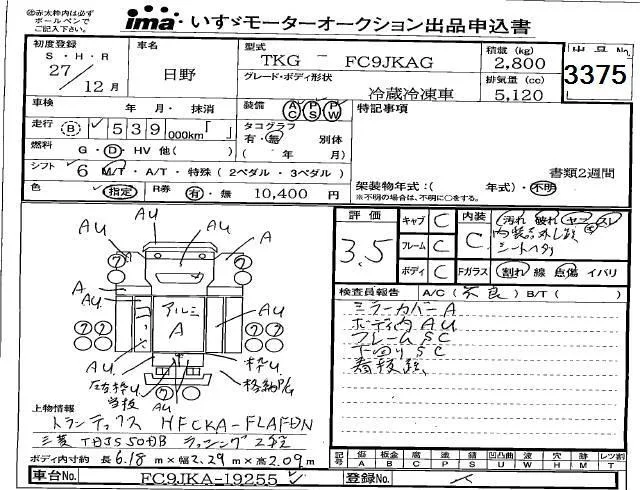 ㊟赤太枠内は必ず
ボールペンで
ご記入下さい。
ima いすゞモーターオークション出品申込書
初度登録
S・H・R
27
12月
車名
日野
型式
TKG - FC9JKAG
積載 (kg)
2,800
出品No.
3375
グレード・ボディ形状
冷蔵冷凍車
排気量 (cc)
5,120
車検 年 月・ 抹消
装備 AC PS PW
特記事項
走行 (B) 539 000km「 」
タコグラフ
有・無 別体
( 年 月)
燃料 G・D・HV 他( )
シフト 6 M/T・A/T・特殊(2ペダル・3ペダル)
書類2週間
色 指定 R券 有・無 10,400 円
架装物年式:( 年式)・不明
※不明の場合は、不明に○をする。
評価
3.5
キャブ C
フレーム C
ボディ C
内装 C
汚れ 破れ ヤケ スレ
Fガラス 割れ 線 点傷 イバリ
検査員報告 A/C(不良) B/T( )
ミラーカバーA
ボディ内AU
フレームSC
下回りSC
看板跡
AU
AU
A
A
AU
アルミ
A
AU
AU
AU
上物情報
トランテックス HFCKA-FLAFDN
三菱 TDJS50DB ラッシング2段
ボディ内寸約 長6.18m×幅2.29m×高2.09m
記号 傷 A 板金 B 腐 C 塗 P 錆 S 凹凸曲 U 波 W 穴 H 跡 M レツ割 T
車台No. FC9JKA-19255
登録No.